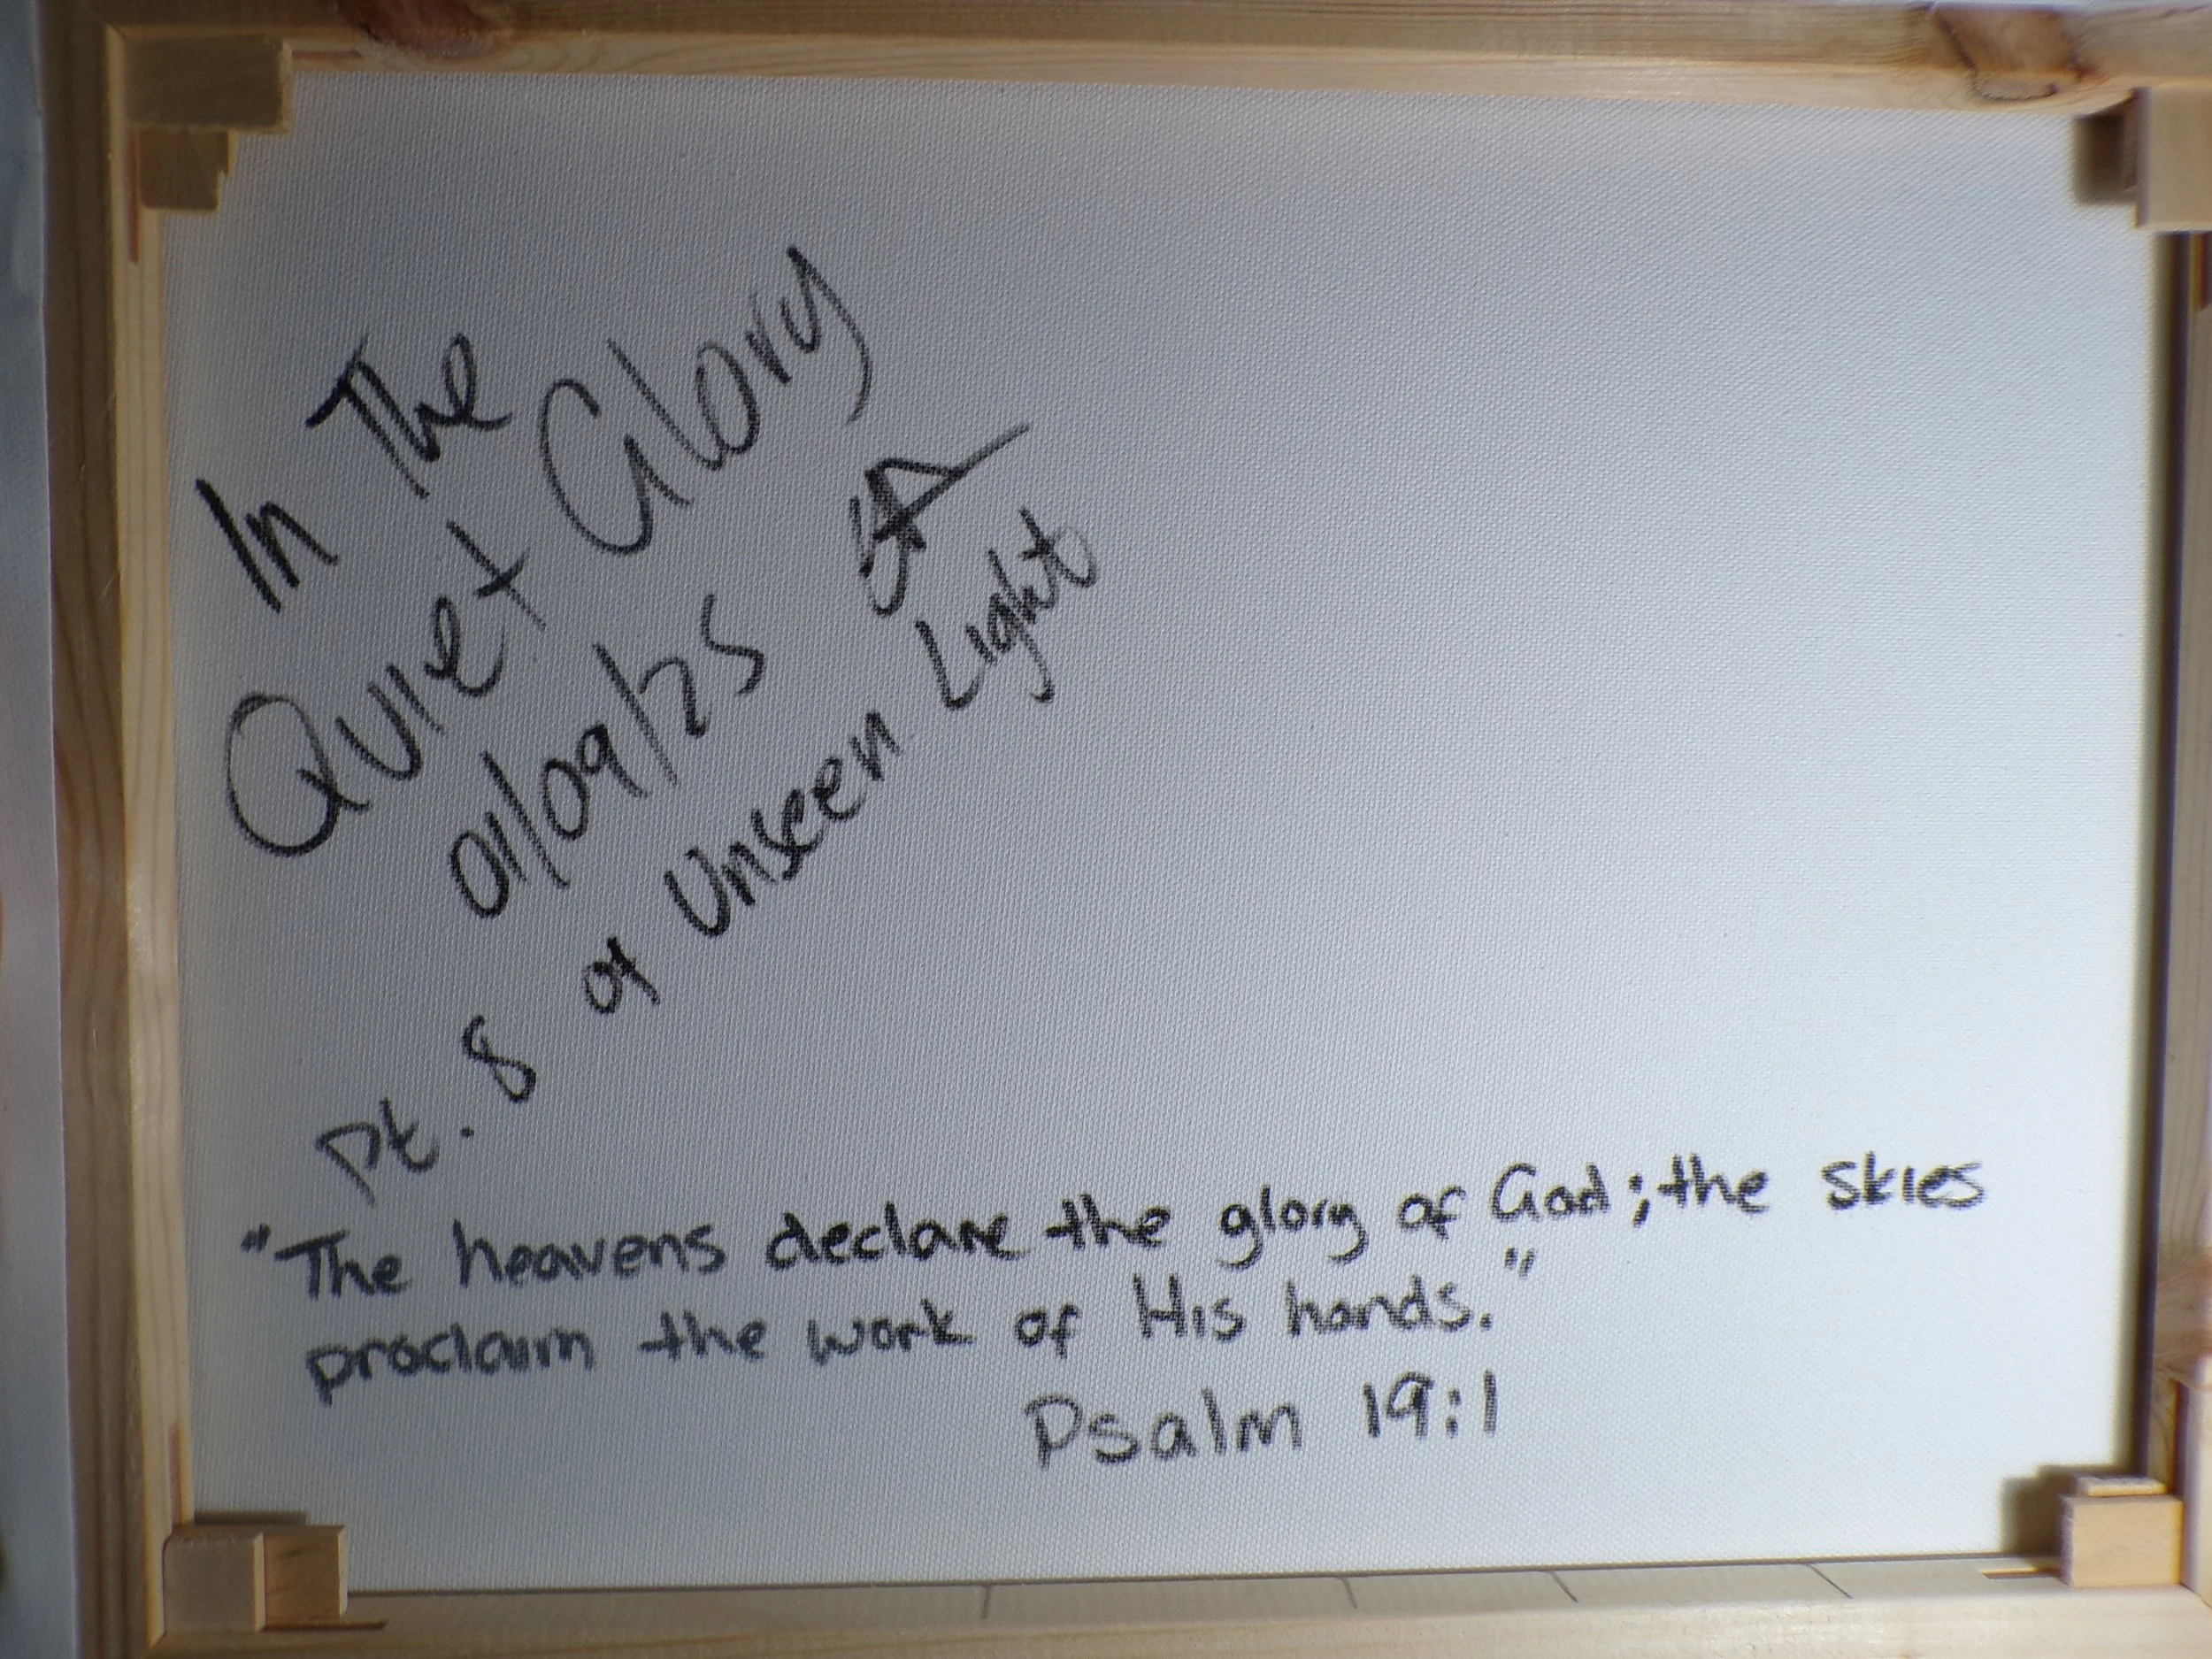 In The
Quiet Glory
01/09/25
Pt. 8 of Unseen Light
"The heavens declare the glory of God; the skies
proclaim the work of His hands."
Psalm 19:1